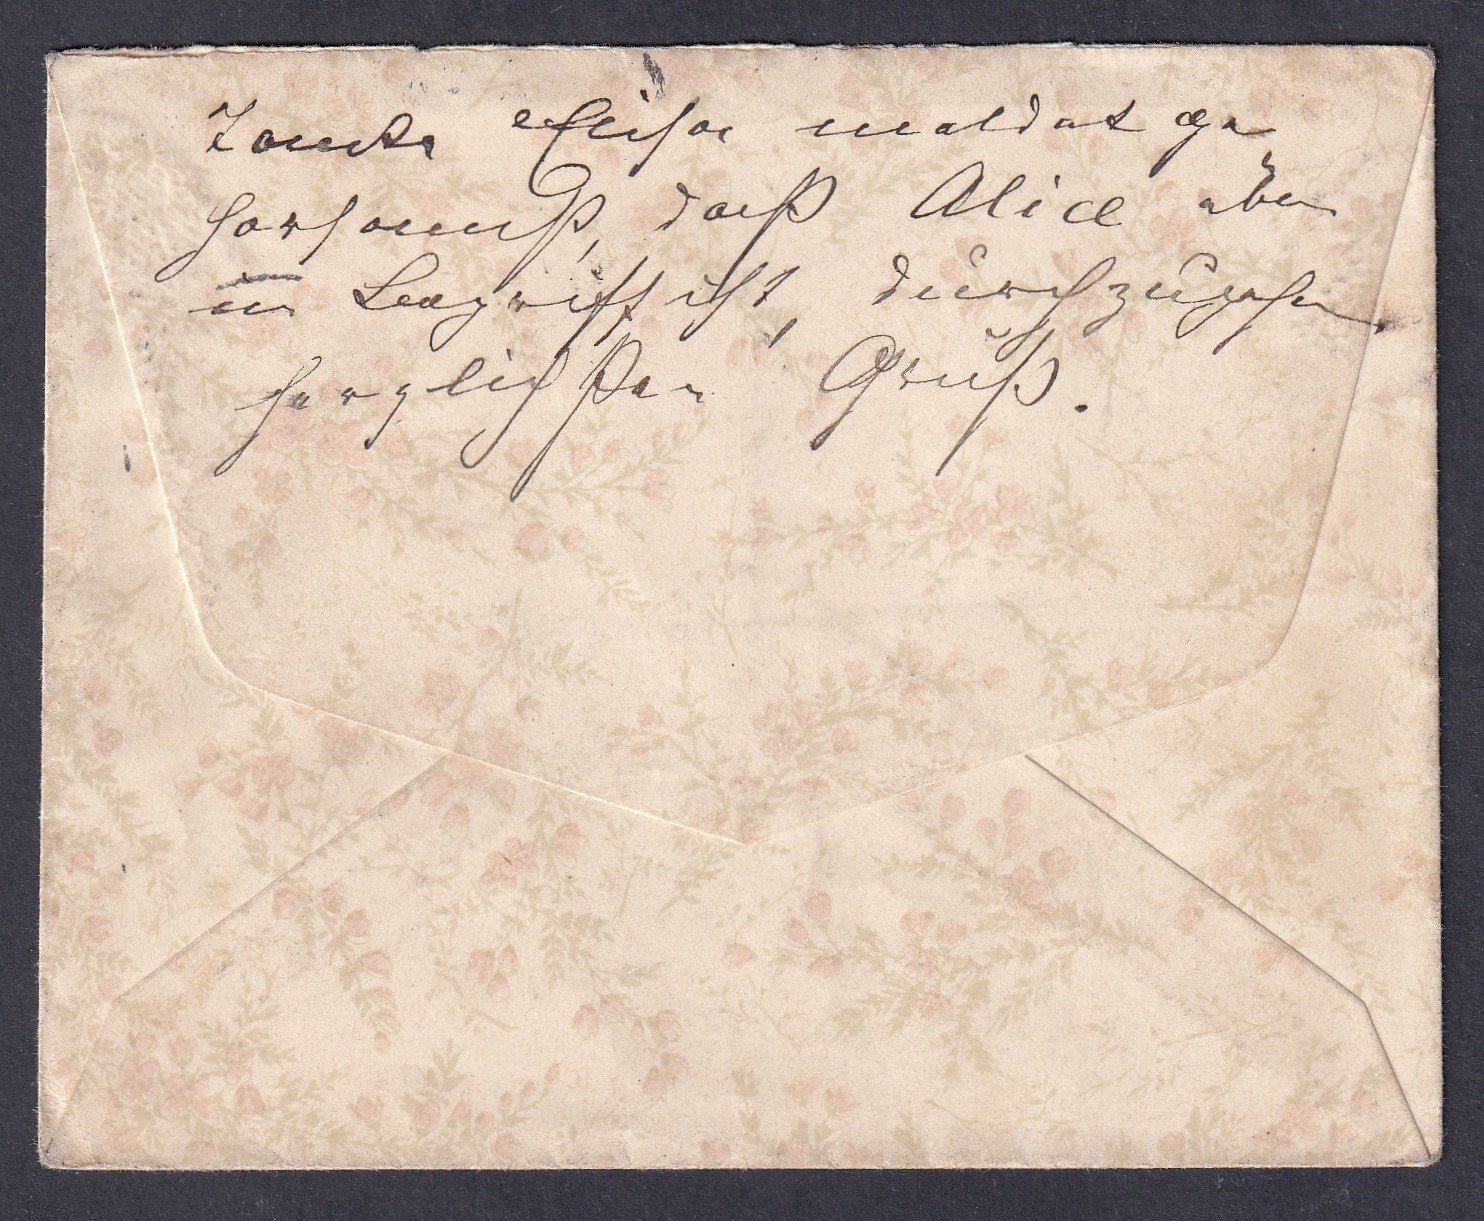 Tante Elise meldet ge
horsamst, daß Alice eben
im Begriff ist, durchzugehen.
herzlichsten Gruß.